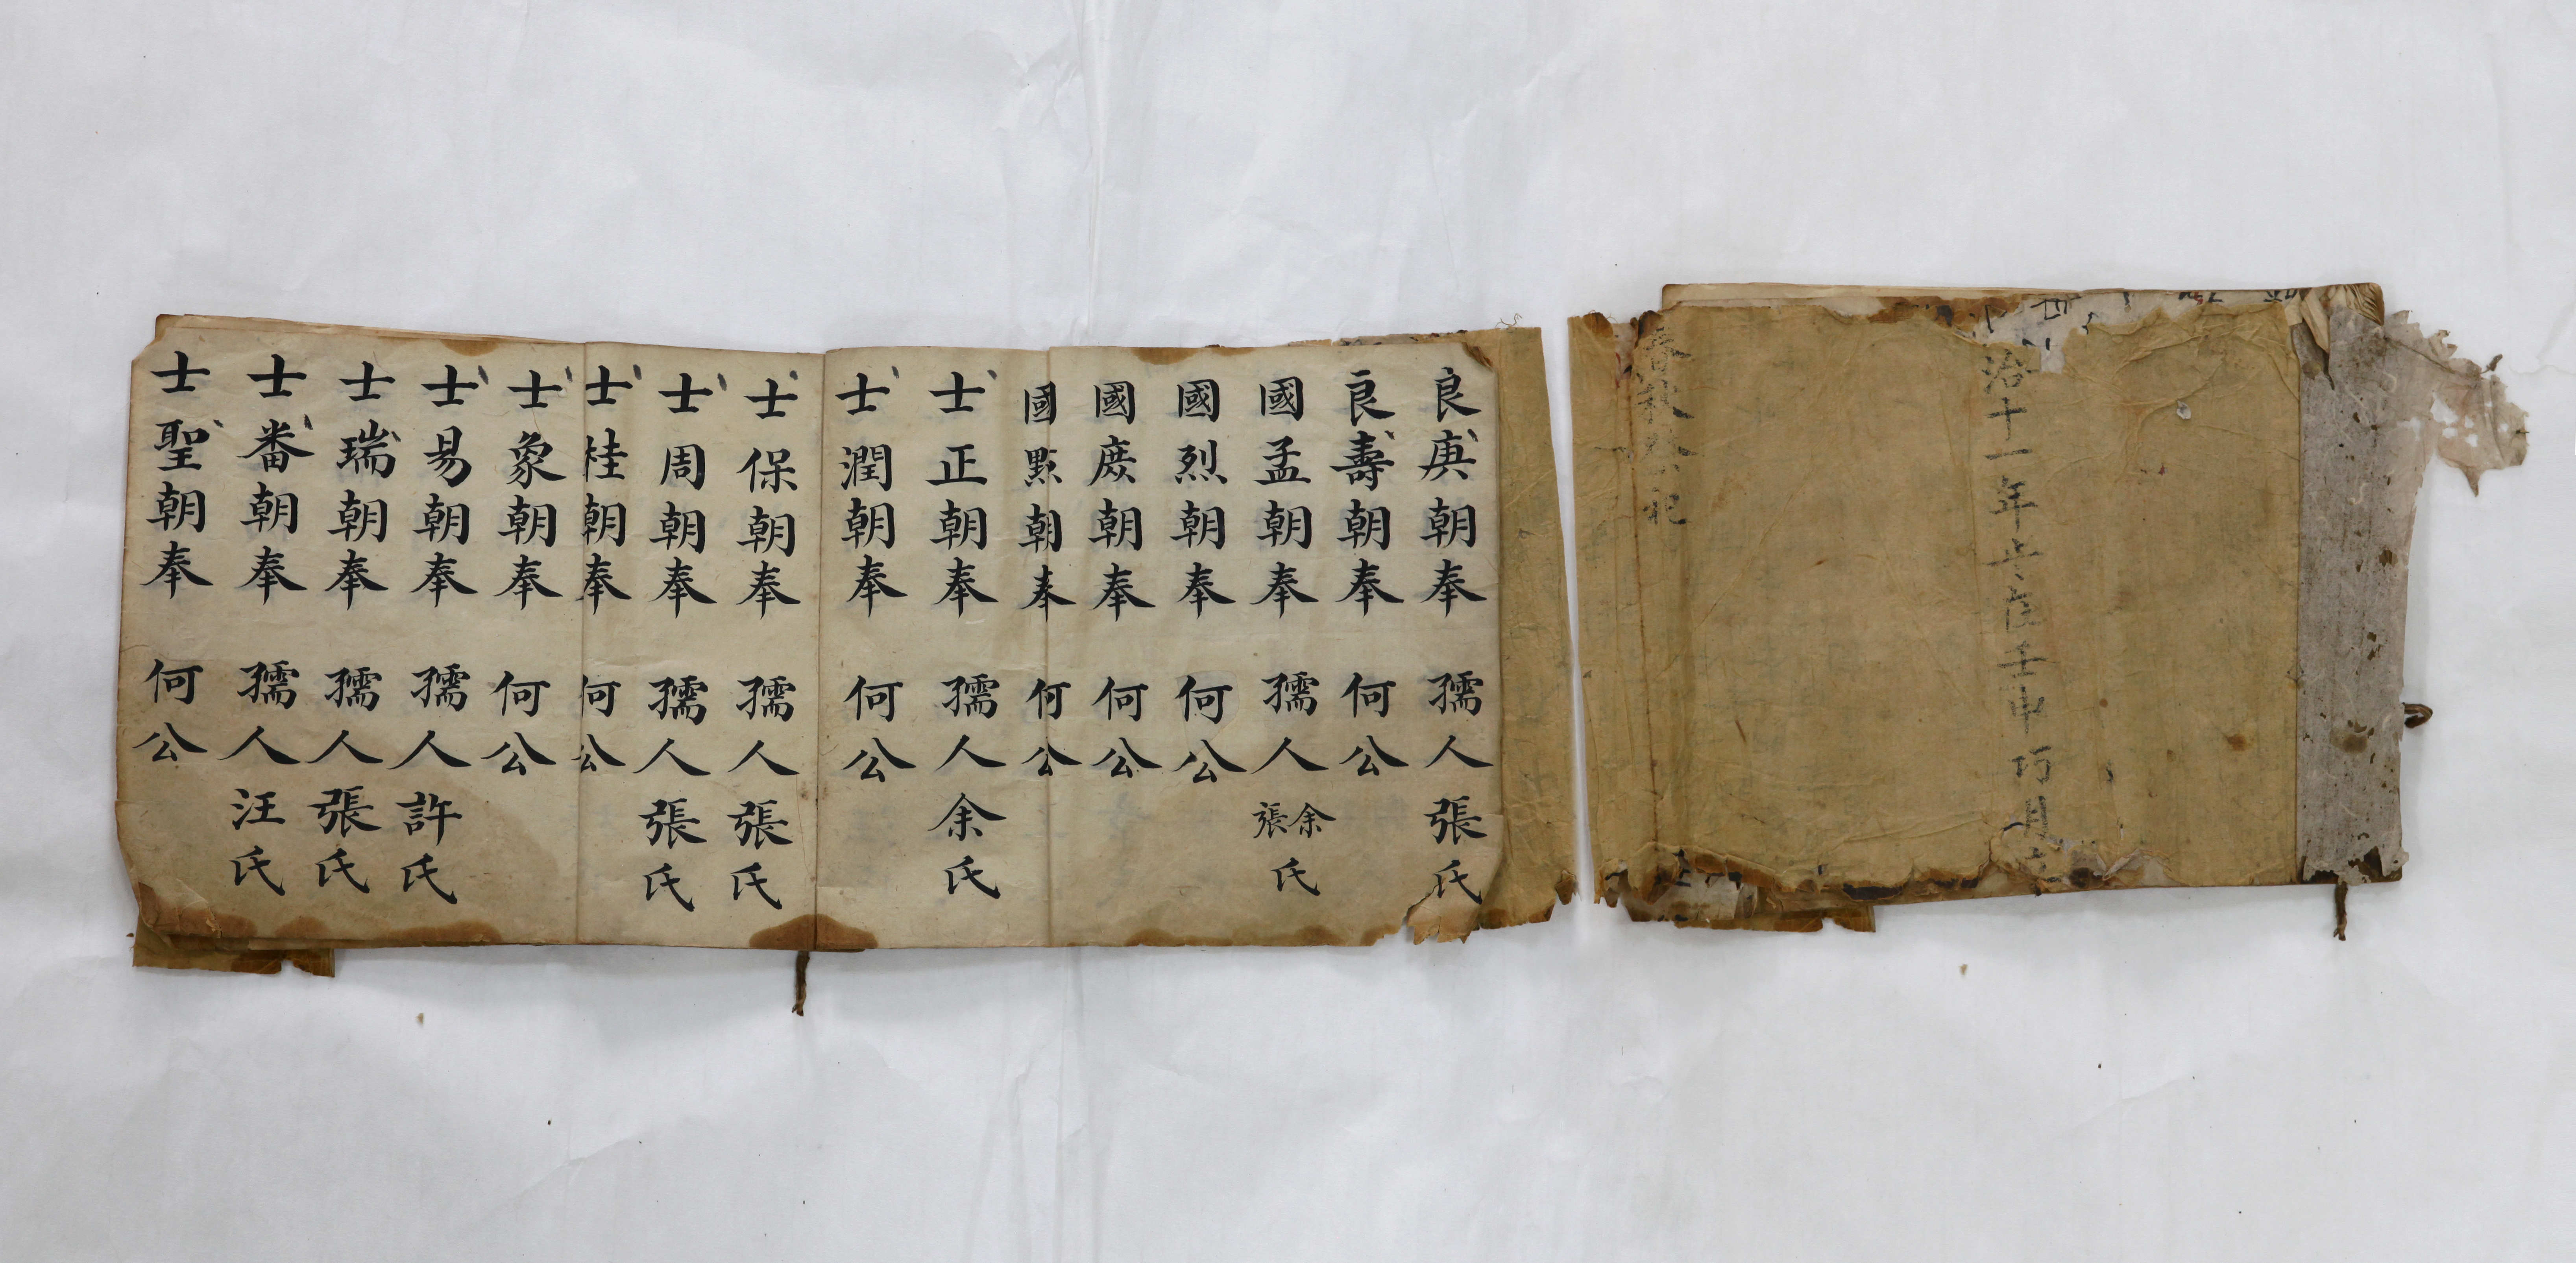 治十一年
壬申巧月
春秋
祀
良庚朝奉 孺人張氏
良壽朝奉 何公
國孟朝奉 孺人余張氏
國烈朝奉 何公
國庻朝奉 何公
國㸃朝奉 何公
士正朝奉 孺人余氏
士潤朝奉 何公
士保朝奉 孺人張氏
士周朝奉 孺人張氏
士桂朝奉 何公
士象朝奉 何公
士易朝奉 孺人許氏
士瑞朝奉 孺人張氏
士番朝奉 孺人汪氏
士聖朝奉 何公